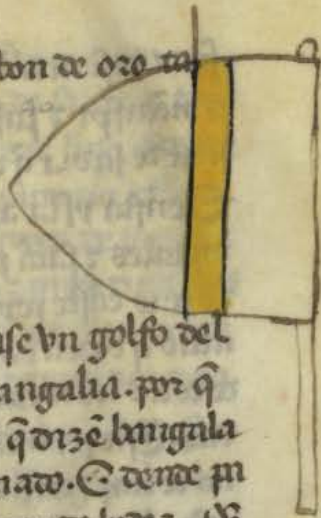 ton de oro ta
ase vn golfo del
angalia. por q̃
q̃ dizẽ bangala
nado. E dende pa